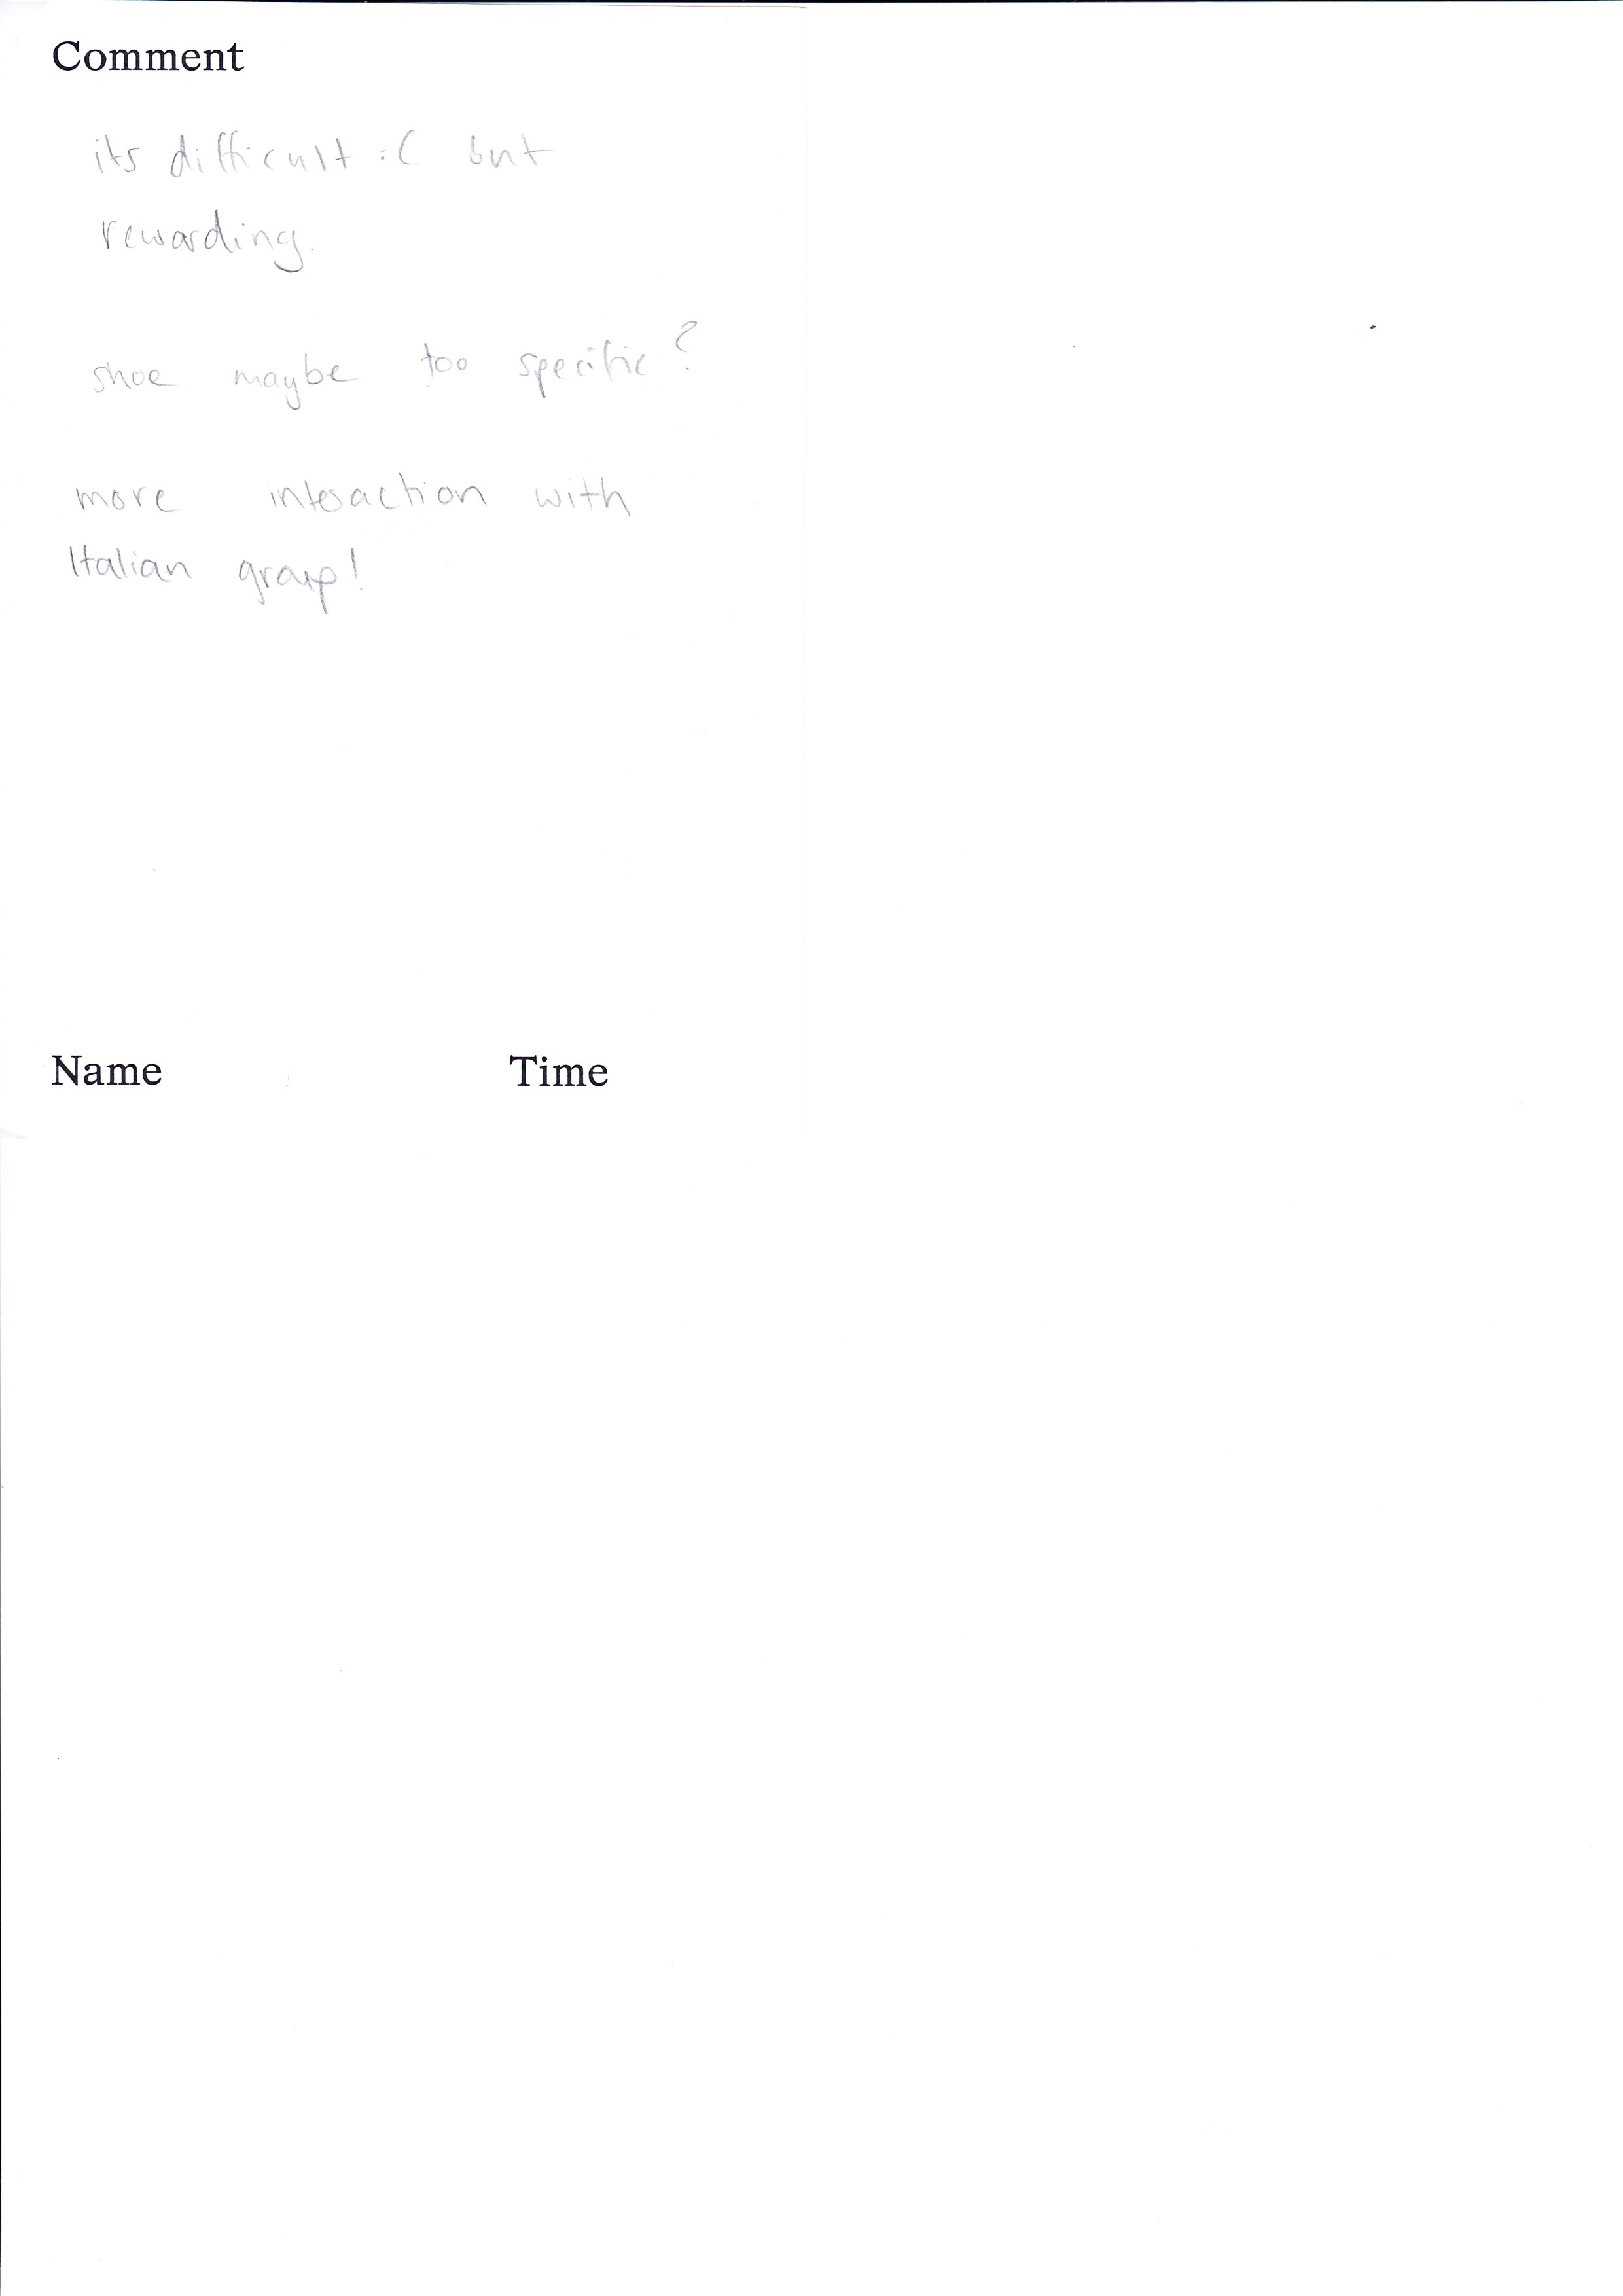 Comment
its difficult :( but
rewarding.
shoe maybe too specific?
more interaction with
Italian group!
Name Time